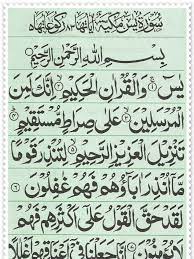 سُوْرَةُ يٰسٓ مَكِّيَّةٌ
بِسْمِ اللهِ الرَّحْمٰنِ الرَّحِيْمِ
يٰسٓ ۚ١ وَالْقُرْاٰنِ الْحَكِيْمِ ۙ٢ اِنَّكَ لَمِنَ
الْمُرْسَلِيْنَ ۙ٣ عَلٰى صِرَاطٍ مُّسْتَقِيْمٍ ؕ٤
تَنْزِيْلَ الْعَزِيْزِ الرَّحِيْمِ ۙ٥ لِتُنْذِرَ قَوْمًا
مَّاۤ اُنْذِرَ اٰبَآؤُهُمْ فَهُمْ غٰفِلُوْنَ ٦
لَقَدْ حَقَّ الْقَوْلُ عَلٰۤى اَكْثَرِهِمْ فَهُمْ
لَا يُؤْمِنُوْنَ ٧ اِنَّا جَعَلْنَا فِيْۤ اَعْنَاقِهِمْ اَغْلٰلًا